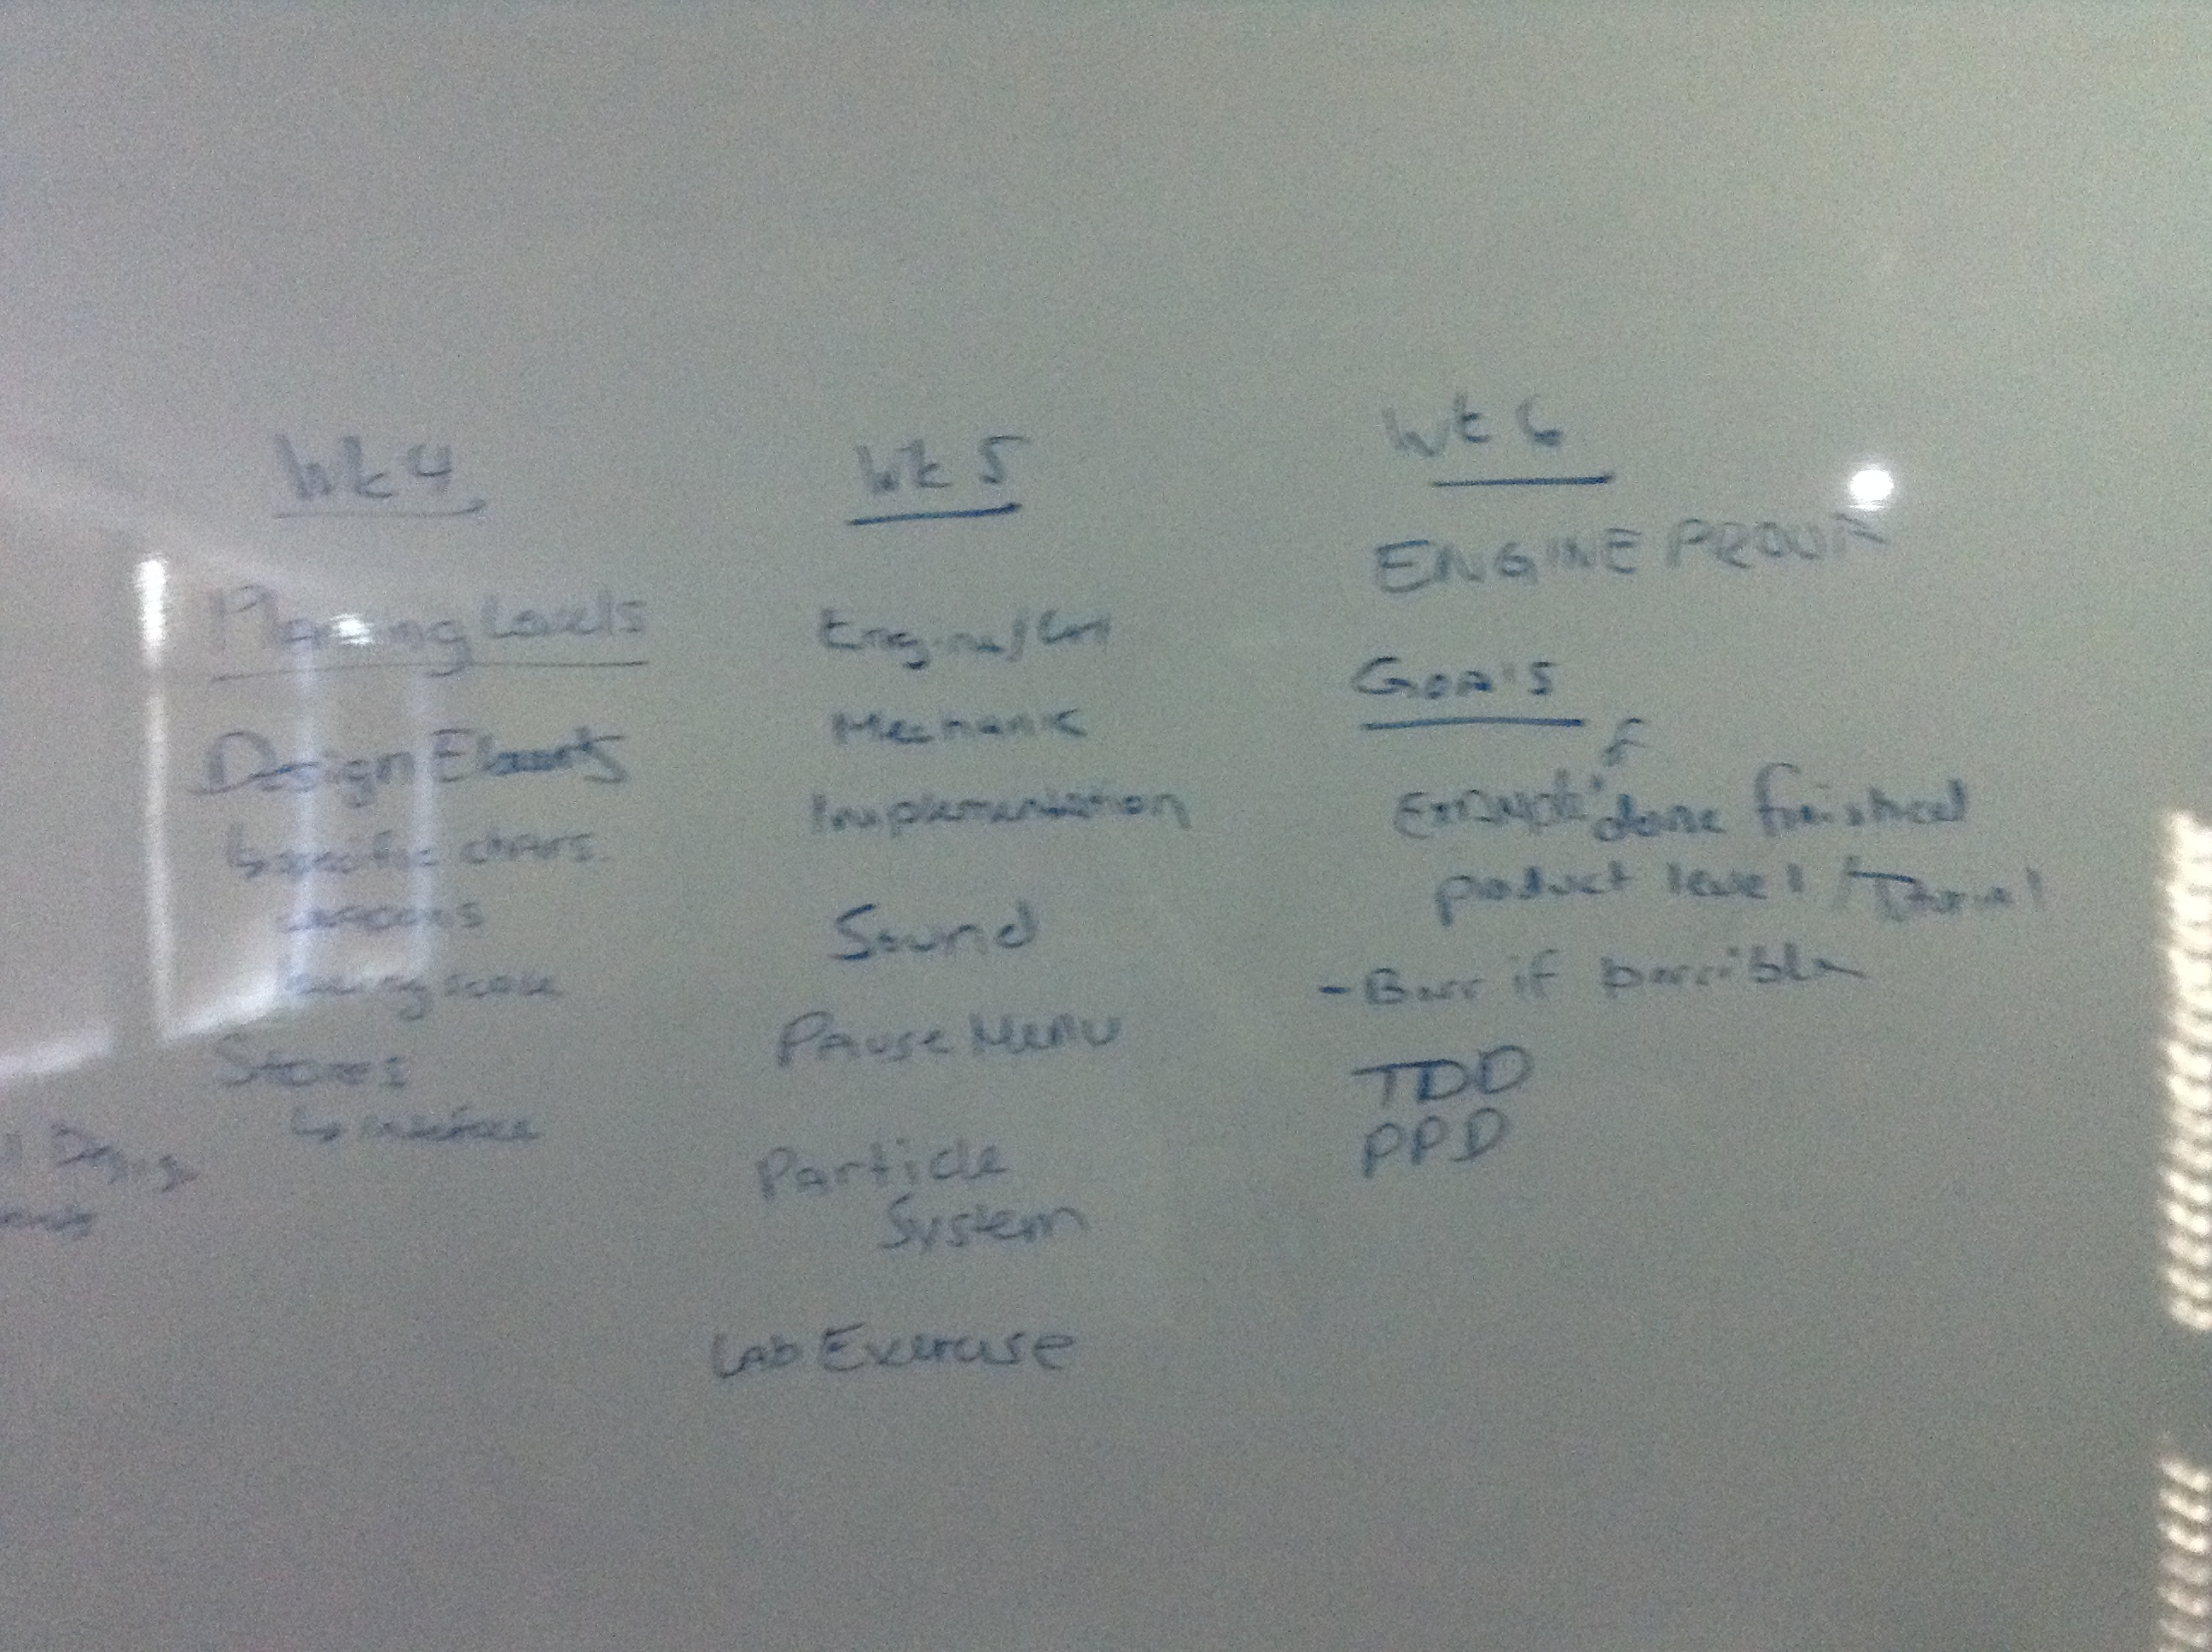 Wk 4
Planning Levels
Design Elements
↳ specific chars
weapons
Stores
↳ interface
Wk 5
Engine/
Mechanic
Implementation
Sound
Pause Menu
Particle
System
Lab Exercise
Wk 6
ENGINE PROOF
Goals
Example of done finished
product level / Tutorial
- Boss if possible
TDD
PPD